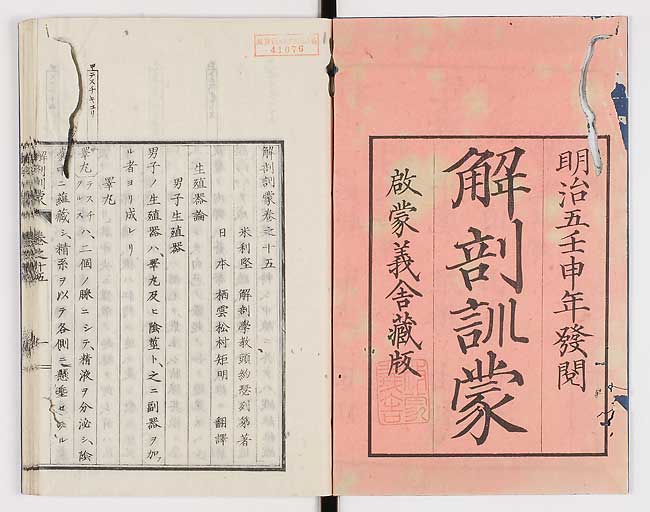 明治五壬申年發閲
解剖訓蒙
啟蒙義舎藏版
41076
解剖訓蒙卷之十五
米利堅 解剖學教頭約瑟列第著
日本 栖雲松村矩明 翻譯
生殖器論
男子生殖器
男子ノ生殖器ハ、睾丸及ヒ陰莖ト、之ニ副器ヲ加フ
ル者ヨリ成レリ
睾丸
睾丸テスチクルスハ、二個ノ腺ニシテ、精液ヲ分泌シ、陰
ニ蘊藏シ、精系ヲ以テ各側ニ懸垂セラル